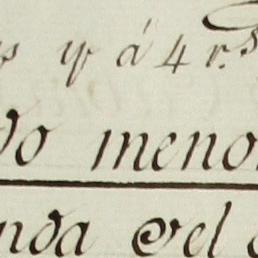 á 4 r.s
do menor
nda del